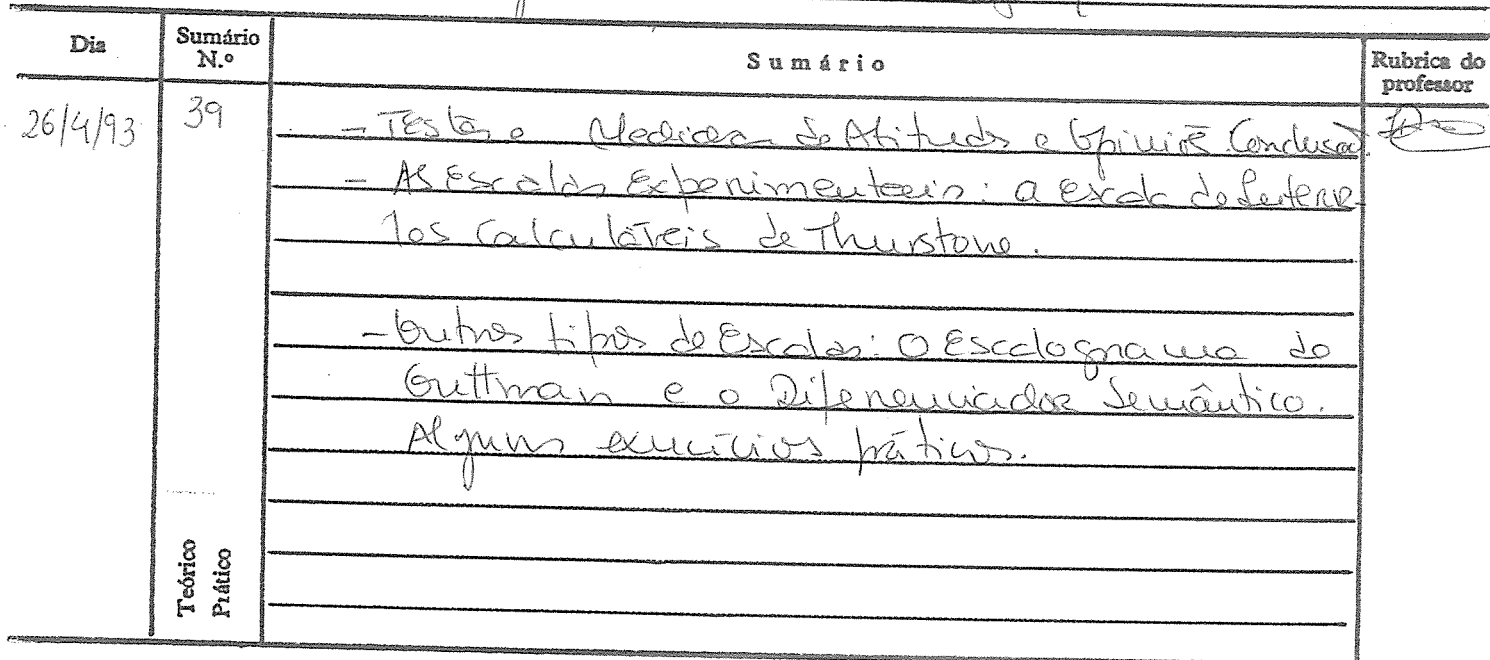 Dia
Sumário N.º
Sumário
Rubrica do professor
26/4/93
39
- Testes e Medida de Atitudes e Opiniões. Conclusão.
- As Escalas Experimentais: a escala de
los Calculáveis de Thurstone.
- Outros tipos de Escalas: O Escalograma de
Guttman e o Diferenciador Semântico.
Alguns exercícios práticos.
Teórico
Prático